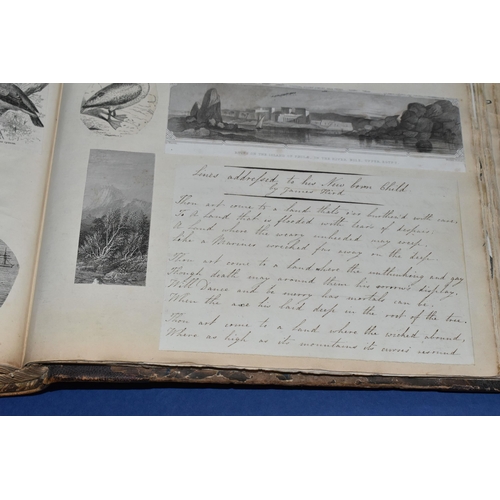 Lines addressed to his New born Child
by James
Thou art come to a land
To A land that is flooded with tears of
A land where the weary unheeded may weep
Like a Mariner wrecked far away on the deep
Thou art come to a land where the unthinking and gay
Though death may around them his arrows display
Will Dance and be merry has mortals can be
When the axe his laid deep in the root of the tree
Thou art come to a land where the wicked abound
Where as high as its mountains its curses resound